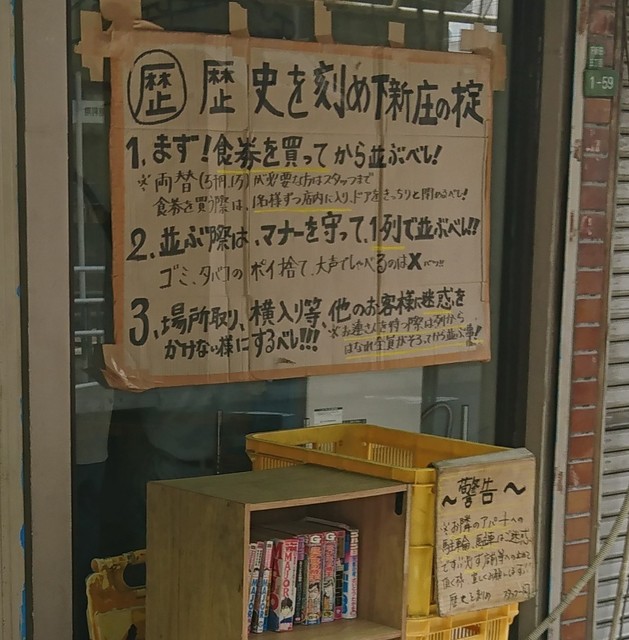 歴 歴史を刻め下新庄の掟
1. まず!食券を買ってから並ぶべし!
※両替(5千円,1万)が必要な方はスタッフまで
食券を買う際は、1名様ずつ店内に入り、ドアをきっちりと閉めるべし!
2. 並ぶ際は、マナーを守って、1列で並ぶべし!!
ゴミ、タバコのポイ捨て、大声でしゃべるのは✕
3. 場所取り、横入り等、他のお客様に迷惑を
かけない様にするべし!!!
※お連さんを待つ際は列から
はなれ全員がそろってから並ぶ事!
1-59
~警告~
※お隣のアパートへの
駐輪、駐車はご迷惑
です
MAJOR